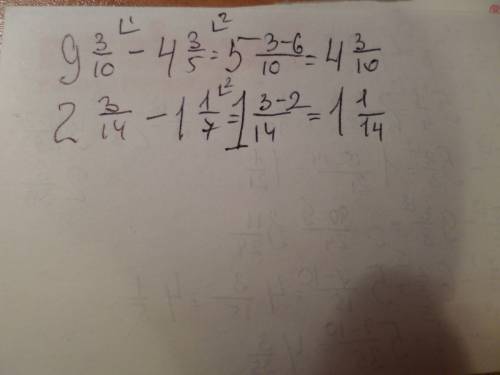 9 3/10 ⌞1 - 4 3/5 ⌞2 = 5 3-6/10 = 4 3/10
2 3/14 - 1 1/7 ⌞2 = 1 3-2/14 = 1 1/14